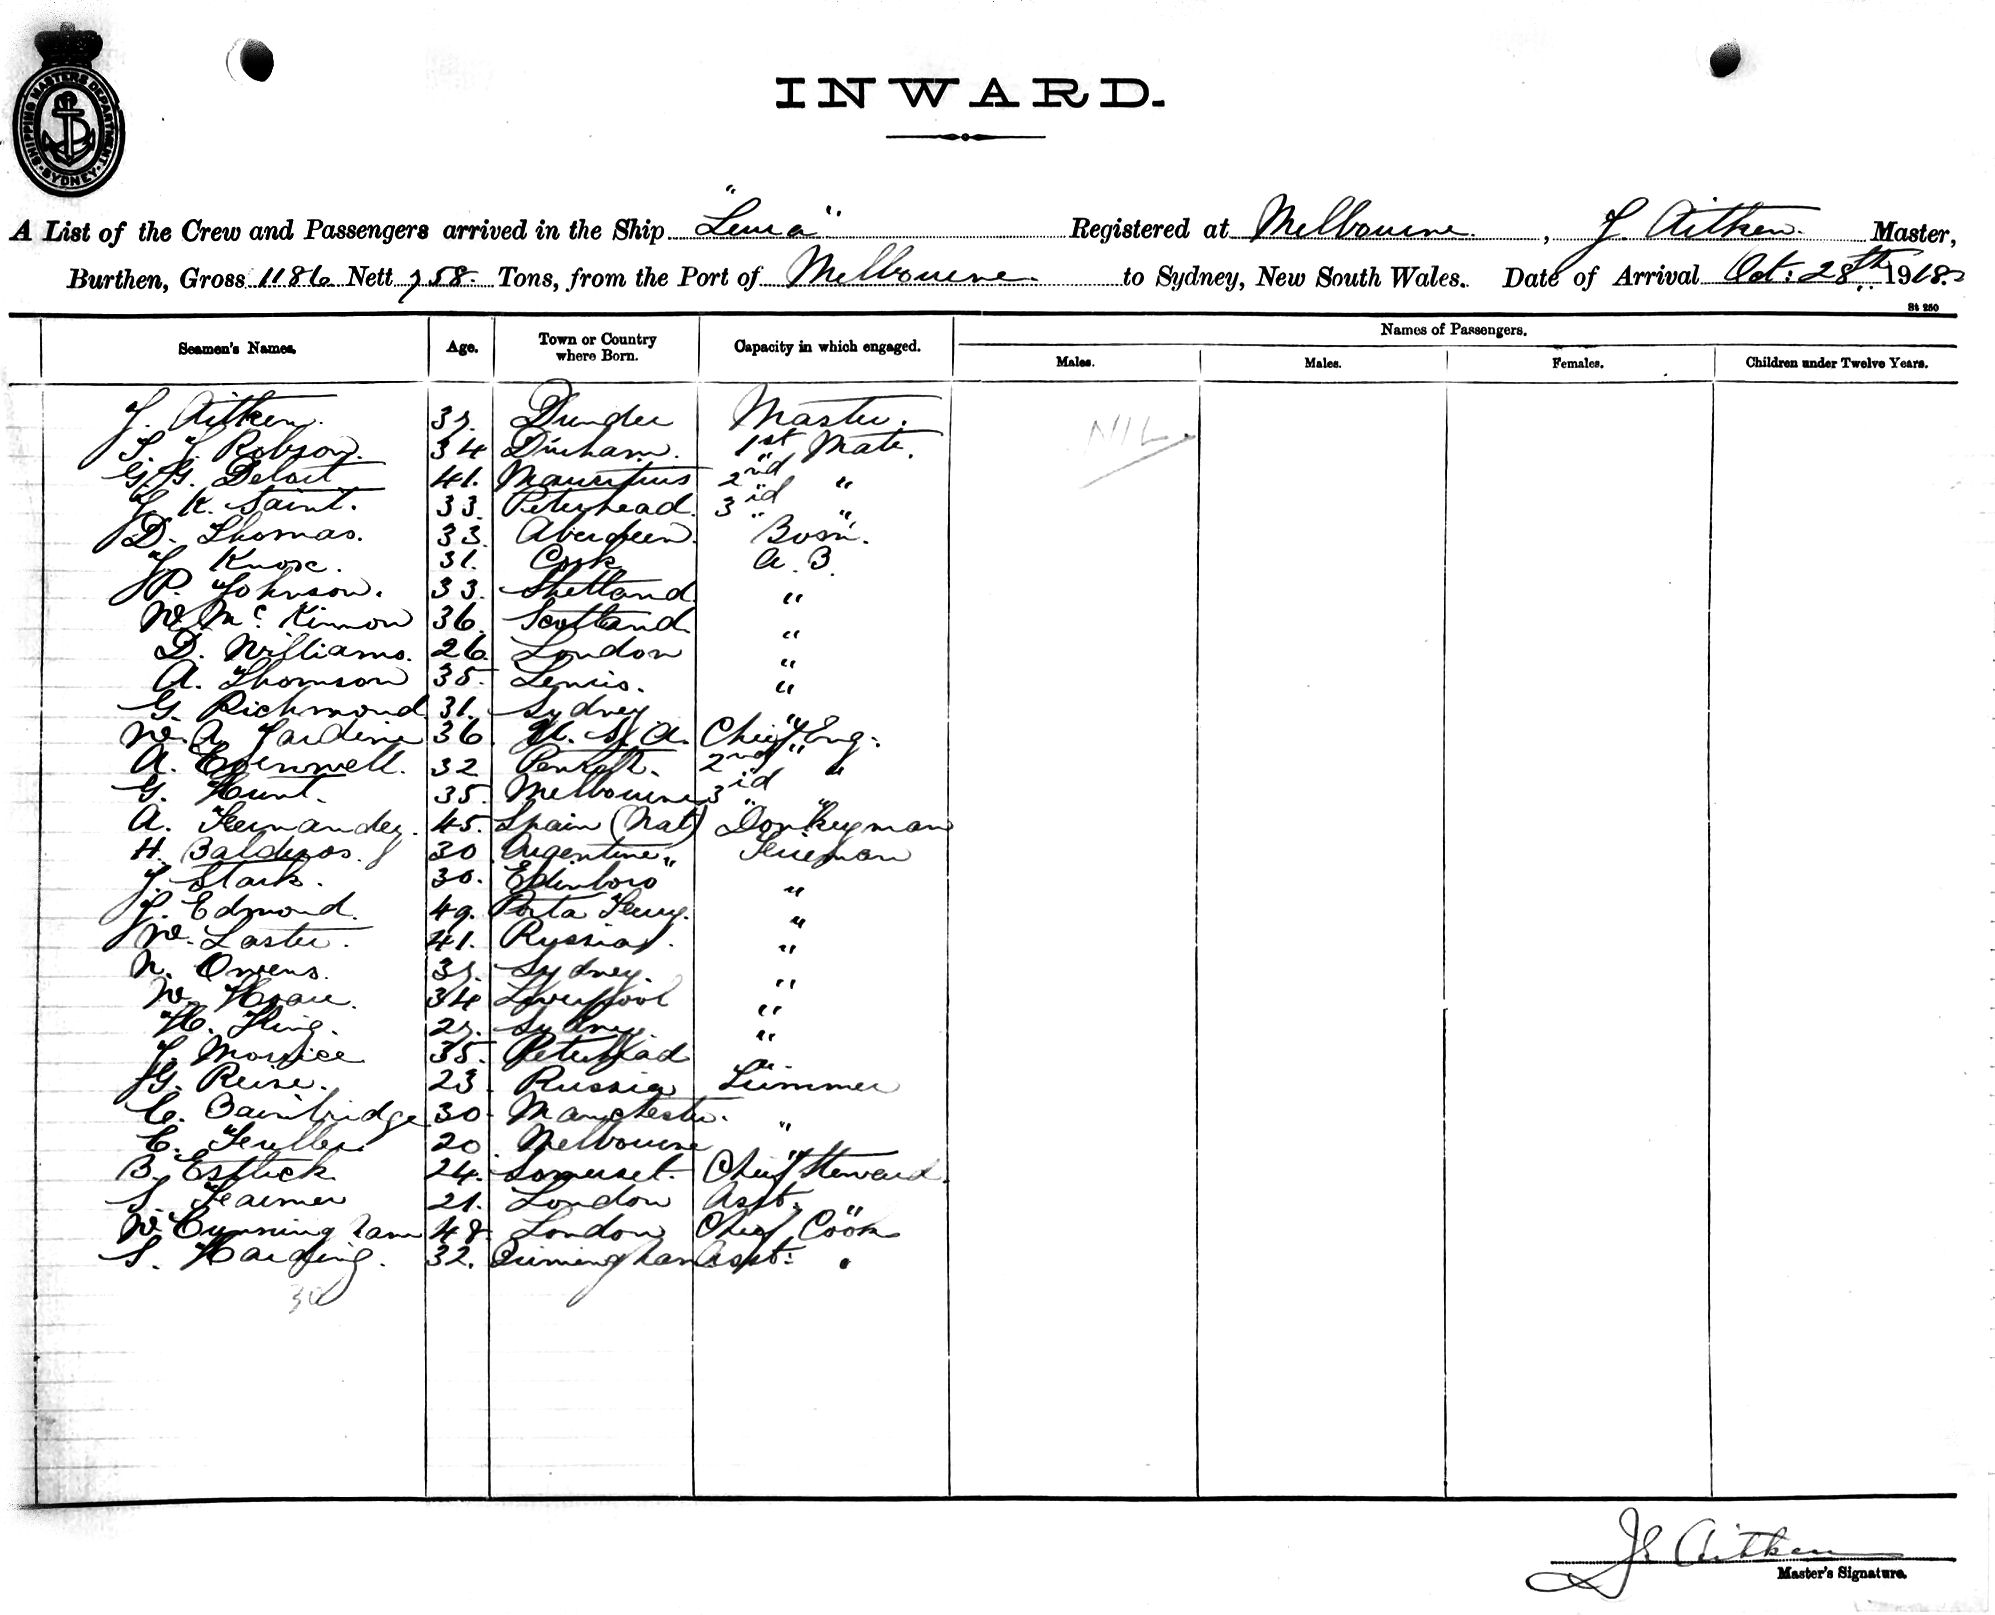 SHIPPING MASTERS DEPARTMENT
SYDNEY
INWARD.
A List of the Crew and Passengers arrived in the Ship Registered at Melbourne. , J. Aitken. Master,
Burthen, Gross 1186 Nett 758. Tons, from the Port of Melbourne. to Sydney, New South Wales. Date of Arrival Oct: 28th 1918.
St 250
Seamen's Names. Age. Town or Country where Born. Capacity in which engaged. Names of Passengers.
Males. Males. Females. Children under Twelve Years.
J. Aitken. Dundee Master. NIL.
S. J. Robson. 34 Durham. 1st Mate.
G. G. 41. Mauritius 2nd "
J. K. Saint. 33. Peterhead. 3id "
D. Thomas. 33. Aberdeen. Bosn.
J. Knox. 31. Cork A. B.
P. Johnson. 33. Shetland. "
W. McKinnon 36. Scotland. "
D. Williams. 26. London "
A. Thomson 35. "
G. Richmond 31. Sydney "
W. A. Jardine 36. U. S. A. Chief Eng.
A. 32 2nd "
G. Hunt. 35. Melbourne 3id "
A. Fernandez. 45. Spain (Nat) Donkeyman
H. 30 Argentine " Fireman
J. Stark. 30. Edinboro "
J. Edmond. 49. Porta Ferry. "
W. 41. Russia. "
N. Owens. Sydney. "
W. Hoare. 34 Liverpool "
H. King. Sydney. "
J. Morrice 35. Peterhead "
G. 23 Russia Trimmer
C. Bainbridge 30 Manchester. "
C. Fuller 20 Melbourne "
B. Estlick 24. Somerset. Chief Steward.
S. 21. London Asst. "
W. Cunningham 48 London Chief Cook
S. Harding. 32. Birmingham Asst: "
30
J. Aitken
Master's Signature.